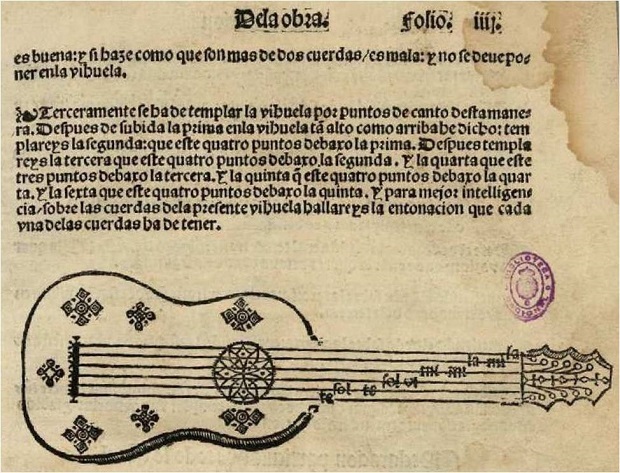 De la obra. Folio. iiij.
es buena: y si haze como que son mas de dos cuerdas/es mala: y no se deue po⸗
ner enla vihuela.
Terceramente se ha de templar la vihuela por puntos de canto desta mane⸗
ra. Despues de subida la prima enla vihuela tã alto como arriba he dicho: tem
plareys la segunda: que este quatro puntos debaxo la prima. Despues templa
reys la tercera que este quatro puntos debaxo la segunda. Y la quarta que este
tres puntos debaxo la tercera. Y la quinta q̃ este quatro puntos debaxo la quar
ta. Y la sexta que este quatro puntos debaxo la quinta. Y para mejor intelligen⸗
cia/sobre las cuerdas dela presente vihuela hallareys la entonacion que cada
vna delas cuerdas ha de tener.
la
la mi
mi mi
sol vt
re sol re
BIBLIOTECA